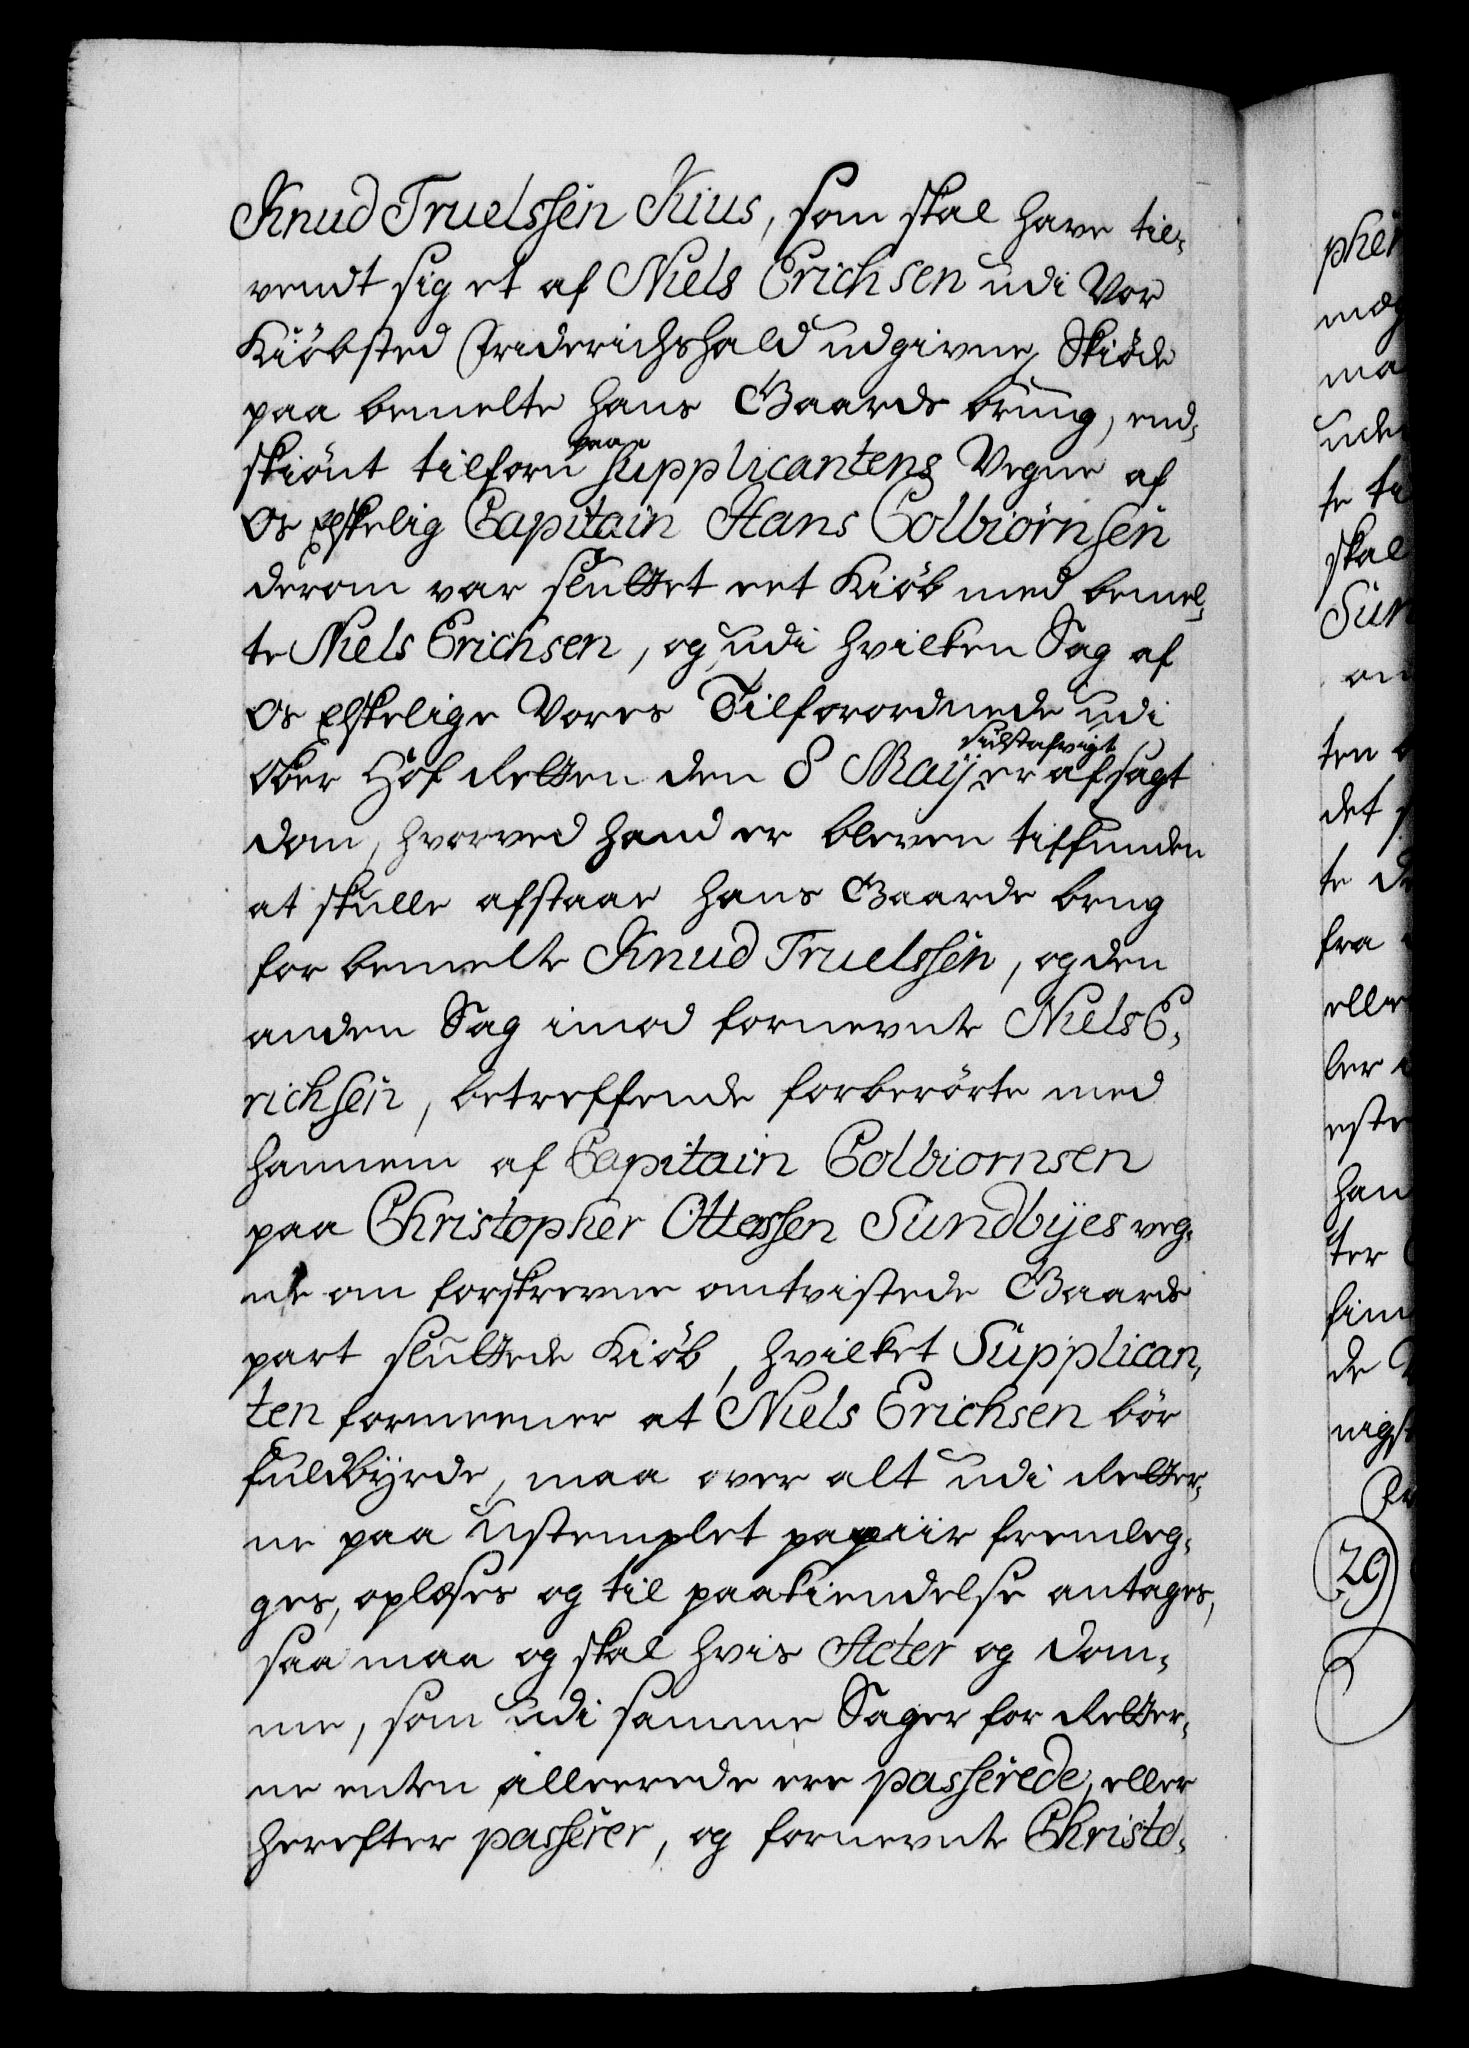 Knud Truelssen Kius, som skal have til-
vendt sig et af Niels Erichsen udi Vor
Kiöbsted Friderichshald udgivne Skiöde
paa bemelte hans Gaards brug, end-
skiönt tilforn paa Supplicantens Vegne af
Os Elskelig Capitain Hans Colbiörnsen
derom var sluttet eet Kiöb med bemel-
te Niels Erichsen, og udi hvilken Sag af
Os Elskelige Vores Tilforordnede udi
Ober Hof Retten den 8 Maij sidstafvigt er afsagt
dom, hvorved hand er bleven tilfunden
at skulle afstaae hans Gaarde brug
for bemelte Knud Truelssen, og den
anden Sag imod fornevnte Niels E-
richsen, betreffende forberörte med
hannem af Capitain Colbiornsen
paa Christopher Ottessen Sundbyes veg-
ne om forskrevne omtvistede Gaards
part sluttede Kiöb, hvilket Supplican-
ten formeener at Niels Erichsen bör
fuldbyrde, maa over alt udi Retter-
ne paa ustemplet papiir fremleg-
ges, oplæses og til paakiendelse antages,
saa maa og skal hvis Acter og Dom-
me, som udi samme Sager for Retter-
ne enten allereede ere passerede, eller
herefter passerer, og fornevnte Christo-
phe
mæ
ma
ude
te ti
skal
Sun
om
ten
det
te
fra
eller
ler
efte
han
ter
fin
de
nigst
29